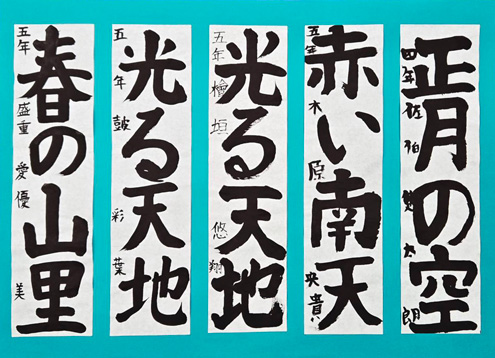 正月の空
四年 佐伯 太朗
赤い南天
五年 木原 央貴
光る天地
五年 檜垣 悠翔
光る天地
五年 鼓 彩葉
春の山里
五年 盛重 愛優美